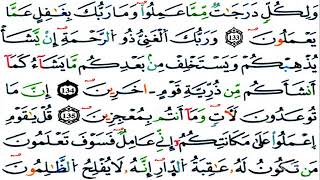 وَلِكُلٍّ دَرَجَٰتٌ مِّمَّا عَمِلُوا۟ وَمَا رَبُّكَ بِغَٰفِلٍ عَمَّا
يَعْمَلُونَ ١٣٣ وَرَبُّكَ ٱلْغَنِىُّ ذُو ٱلرَّحْمَةِ إِنْ يَّشَأْ
يُذْهِبْكُمْ وَيَسْتَخْلِفْ مِنۢ بَعْدِكُم مَّا يَشَآءُ كَمَآ
أَنشَأَكُم مِّن ذُرِّيَّةِ قَوْمٍ ءَاخَرِينَ ١٣٤ إِنَّ مَا
تُوعَدُونَ لَأَتٍ وَمَآ أَنتُم بِمُعْجِزِينَ ١٣٥ قُلْ يَٰقَوْمِ
ٱعْمَلُوا۟ عَلَىٰ مَكَانَتِكُمْ إِنِّى عَامِلٌ فَسَوْفَ تَعْلَمُونَ
مَن تَكُونُ لَهُۥ عَٰقِبَةُ ٱلدَّارِ إِنَّهُۥ لَا يُفْلِحُ ٱلظَّٰلِمُونَ